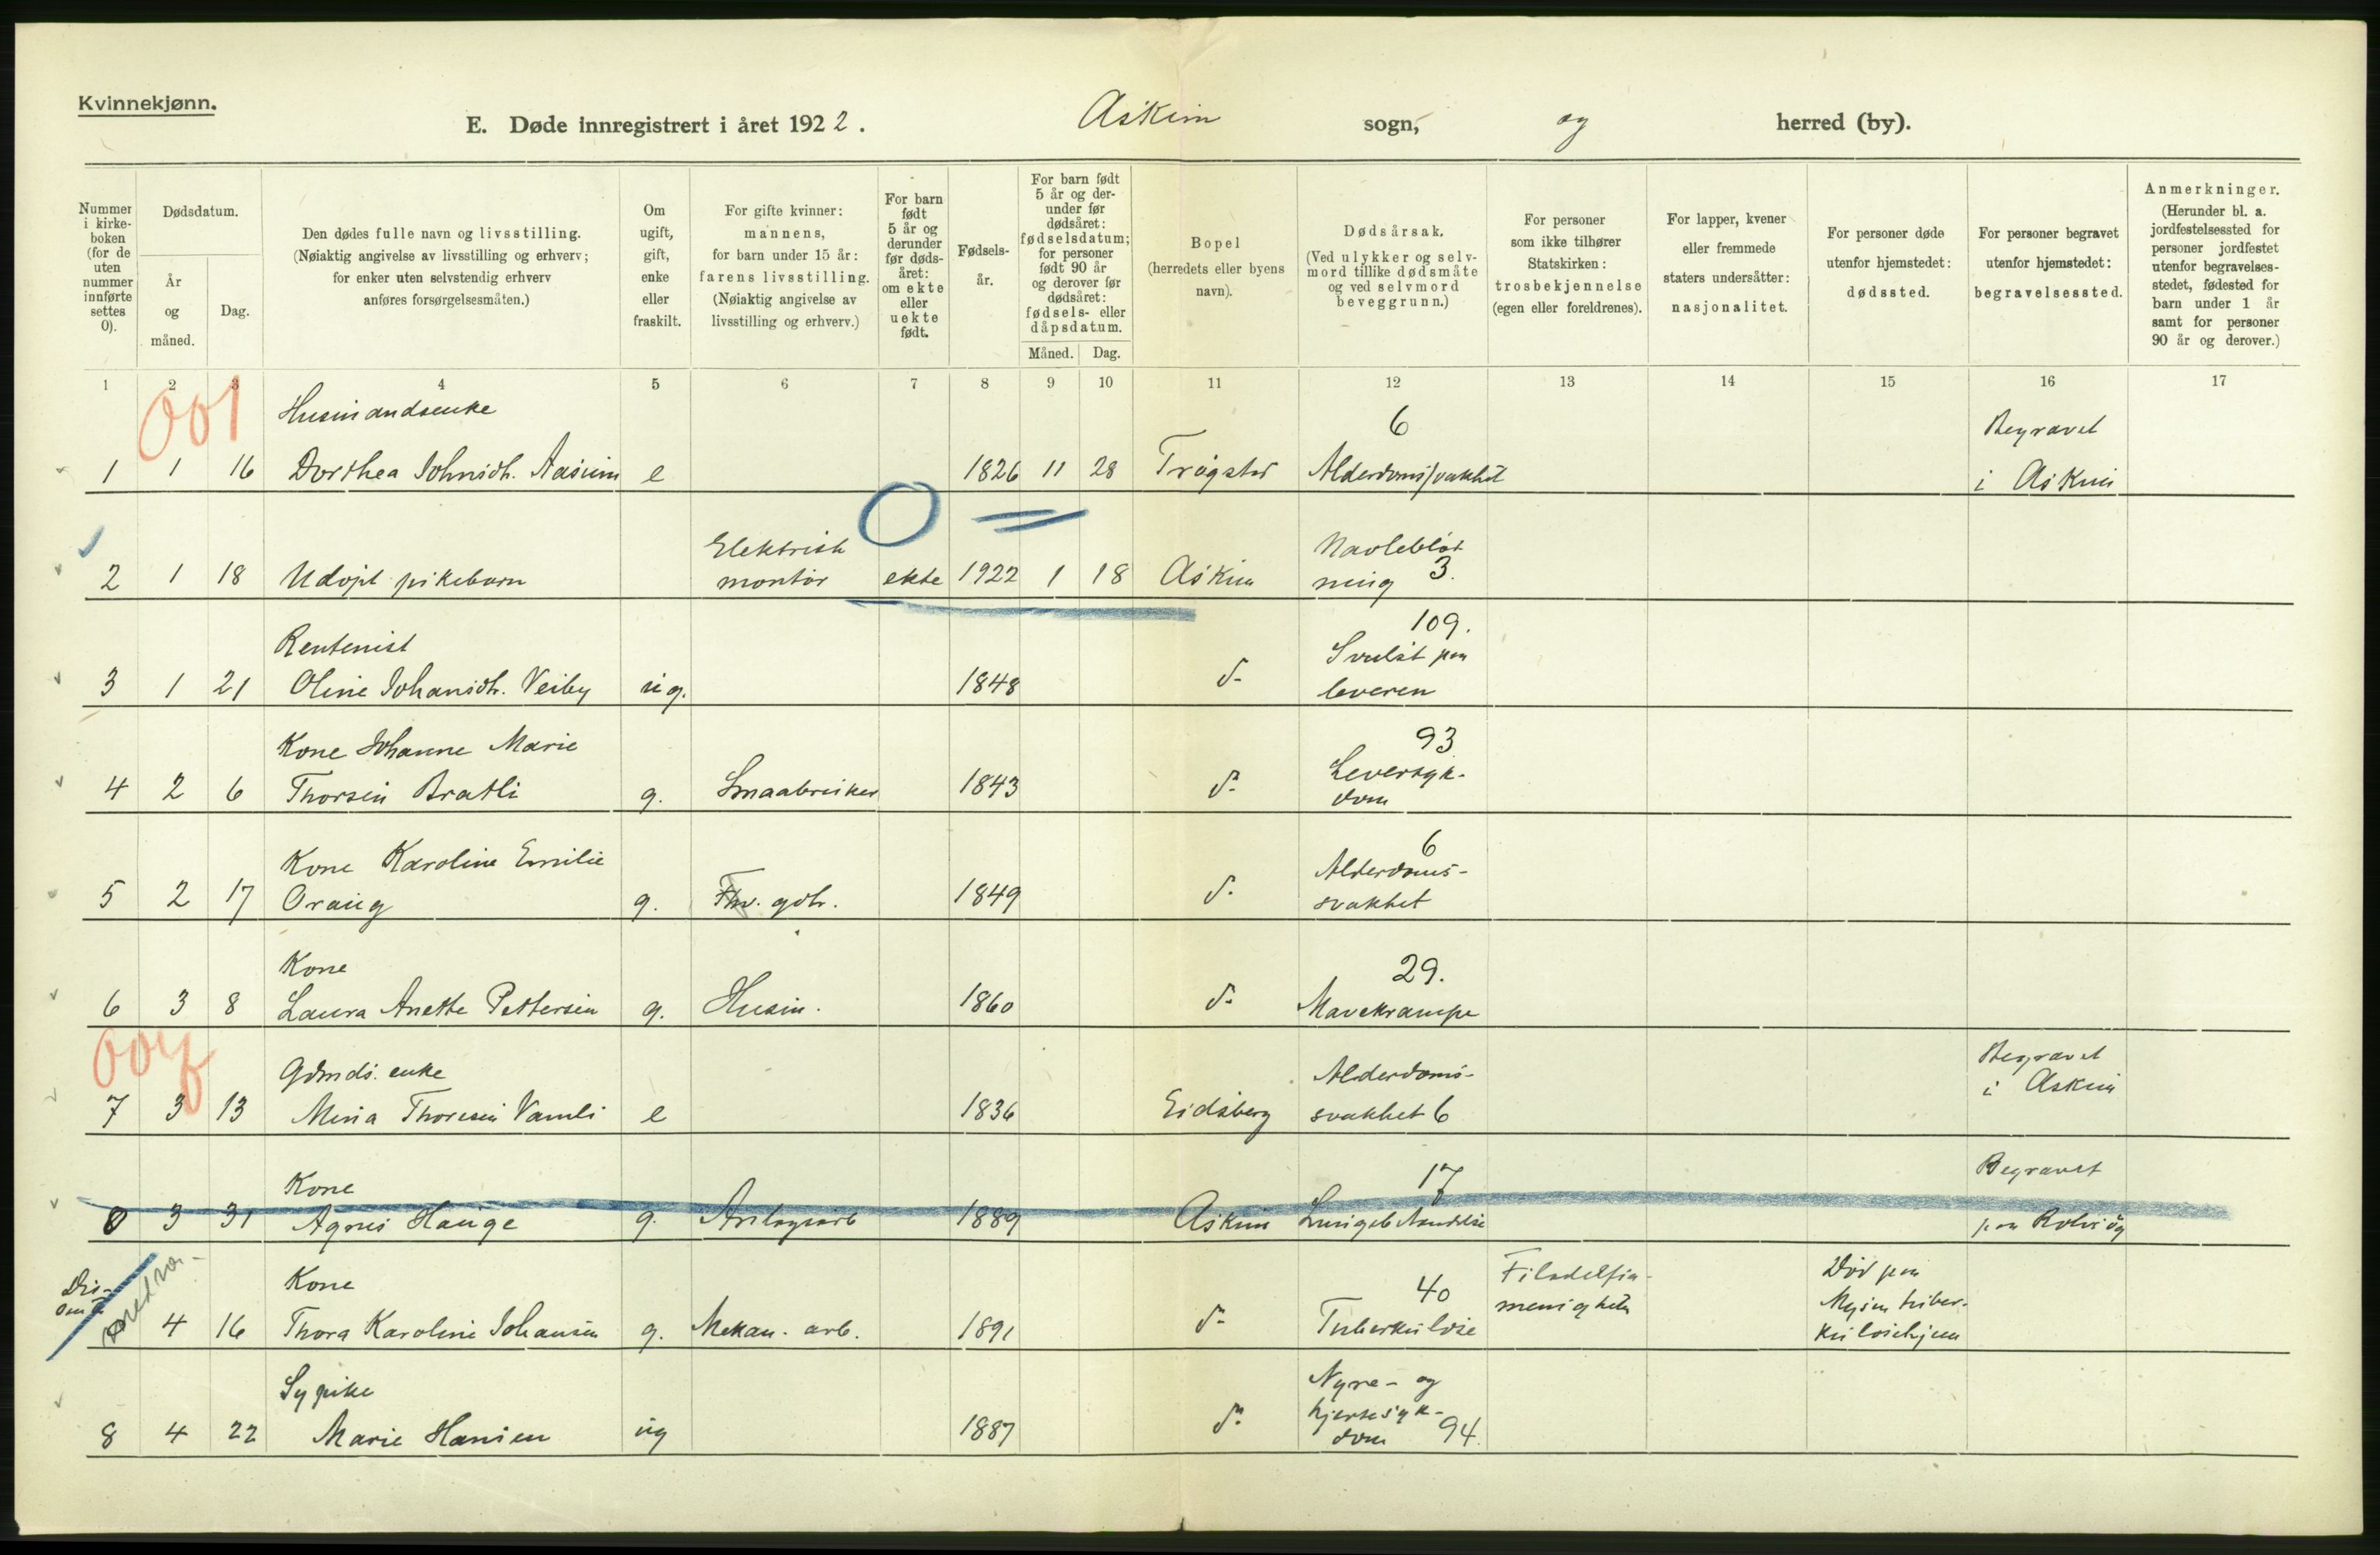 Kvinnekjønn.
E. Døde innregistrert i året 1922. Askim sogn, og herred (by).
Nummer i kirkeboken (for de uten nummer innførte settes 0).
Dødsdatum.
År og måned.
Dag.
Den dødes fulle navn og livsstilling.
(Nøiaktig angivelse av livsstilling og erhverv;
for enker uten selvstendig erhverv
anføres forsørgelsesmåten.)
Om ugift, gift, enke eller fraskilt.
For gifte kvinner:
mannens,
for barn under 15 år:
farens livsstilling.
(Nøiaktig angivelse av
livsstilling og erhverv.)
For barn født 5 år og derunder før dødsåret: om ekte eller uekte født.
Fødselsår.
For barn født 5 år og derunder før dødsåret: fødselsdatum; for personer født 90 år og derover før dødsåret: fødsels- eller dåpsdatum.
Måned. Dag.
Bopel
(herredets eller byens
navn).
Dødsårsak.
(Ved ulykker og selv-
mord tillike dødsmåte
og ved selvmord
beveggrunn.)
For personer
som ikke tilhører
Statskirken:
trosbekjennelse
(egen eller foreldrenes).
For lapper, kvener
eller fremmede
staters undersåtter:
nasjonalitet.
For personer døde
utenfor hjemstedet:
dødssted.
For personer begravet
utenfor hjemstedet:
begravelsessted.
Anmerkninger.
(Herunder bl. a.
jordfestelsessted for
personer jordfestet
utenfor begravelses-
stedet, fødested for
barn under 1 år
samt for personer
90 år og derover.)
1 2 3 4 5 6 7 8 9 10 11 12 13 14 15 16 17
001 Husmandsenke 6 Begravet
1 1 16 Dorthea Johnsdt. Aasum e 1826 11 28 Trøgstad Alderdomssvakhet i Askim
Elektrisk Navleblød-
2 1 18 Udøpt pikebarn montør ekte 1922 1 18 Askim ning 3.
109.
Rentenist Svulst paa
3 1 21 Oline Johansdt. Veiby ug. 1848 do leveren
93
Kone Johanne Marie Leversyk-
4 2 6 Thorsen Bratli g. Smaabruker 1843 do dom
6
Kone Karoline Emilie Alderdoms-
5 2 17 g. Fhv. gdbr. 1849 do svakhet
Kone 29.
6 3 8 Laura Anette Pettersen g. Husm. 1860 do Mavekrampe
004 Gdmds. enke Alderdoms- Begravet
7 3 13 Mina Thoresen Vamli e 1836 Eidsberg svakhet 6 i Askim
Kone 17 Begravet
0 3 31 Agnes Hauge g. 1889 Askim Lungebetændelse paa Rolvsøy
Kone 40 Filadelfia- Død paa
menighet Mysen tuber-
4 16 Thora Karoline Johansen g. Mekan. arb. 1891 do Tuberkulose kulosehjem
Sypike Nyre- og
hjertesyk-
8 4 22 Marie Hansen ug 1887 do dom 94.